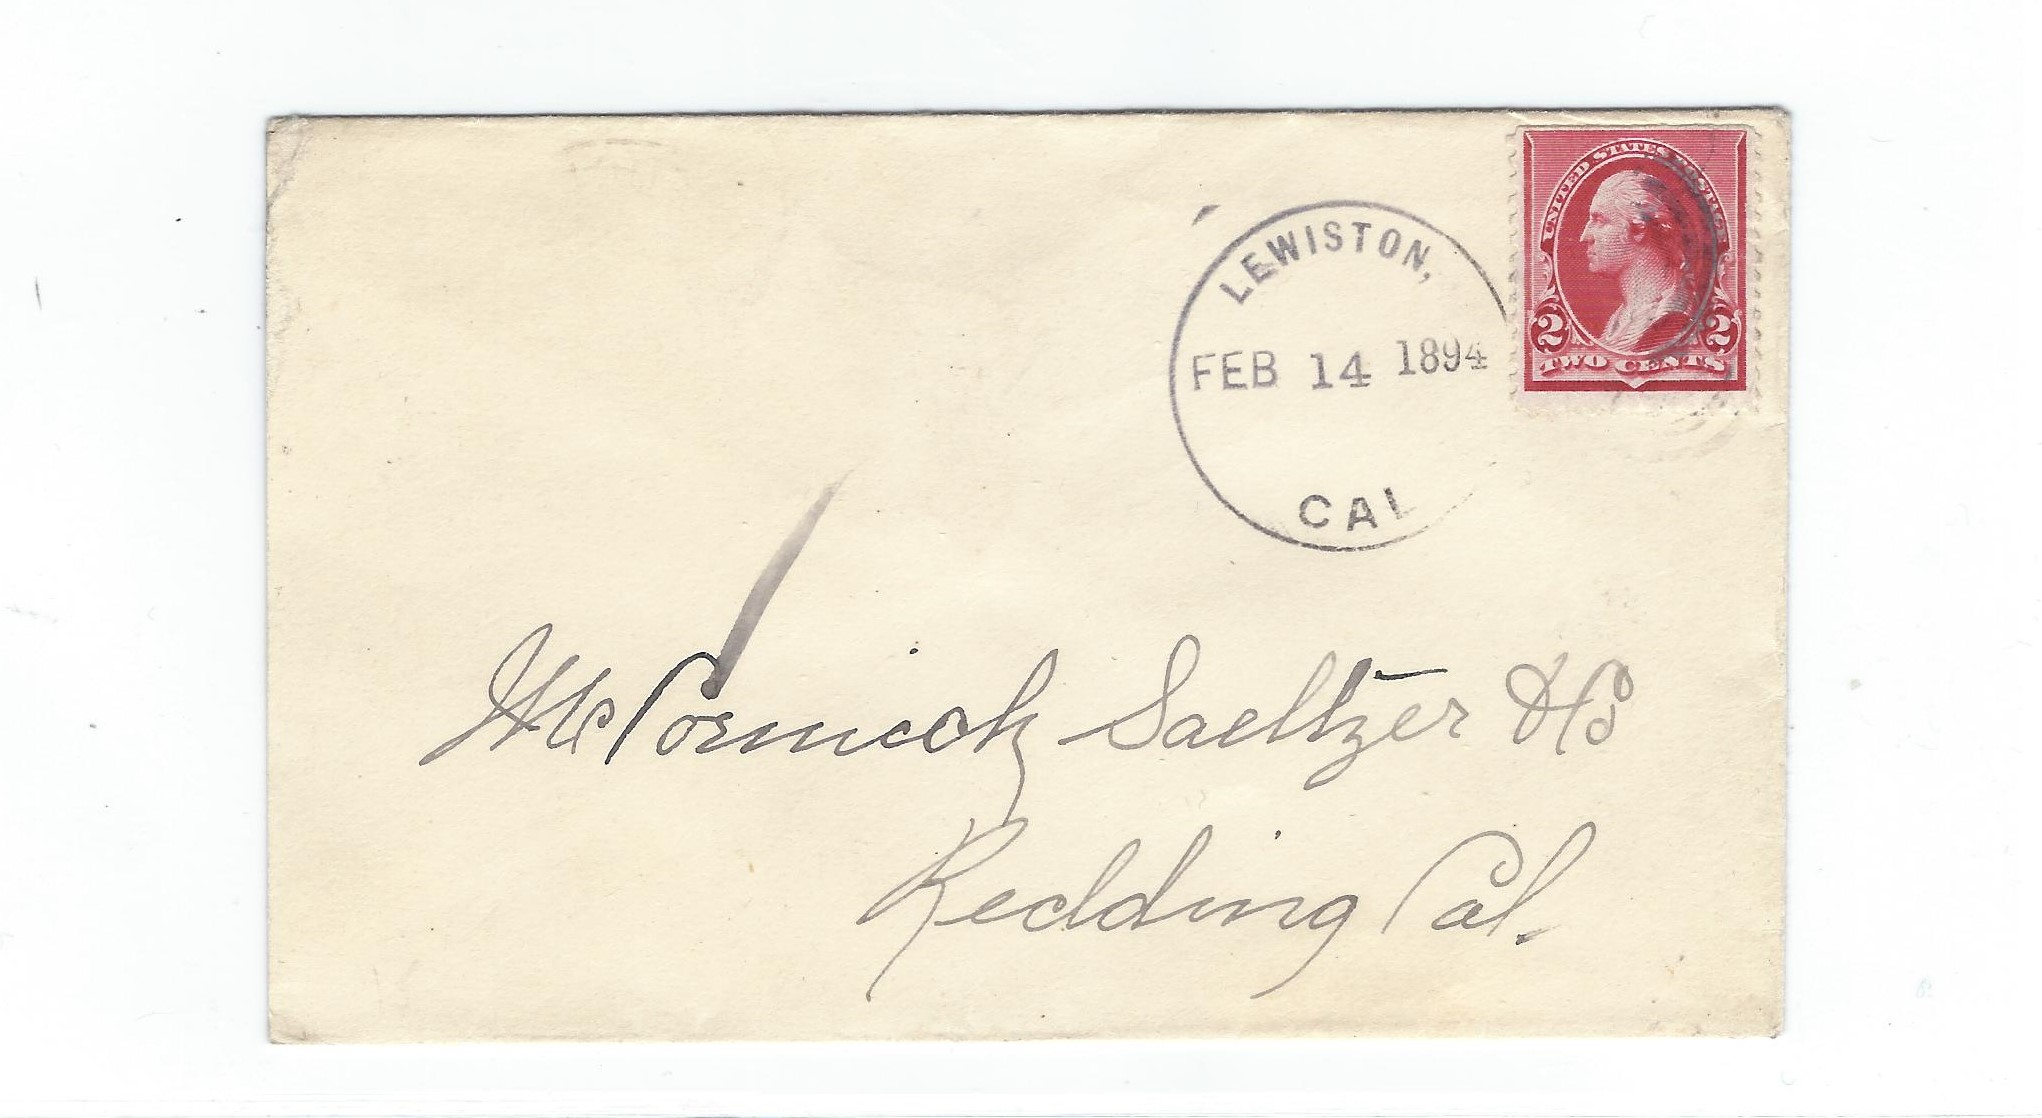 UNITED STATES POSTAGE
2 2
TWO CENTS
LEWISTON,
FEB 14 1894
CAL
McCormick Saeltzer &
Redding Cal.